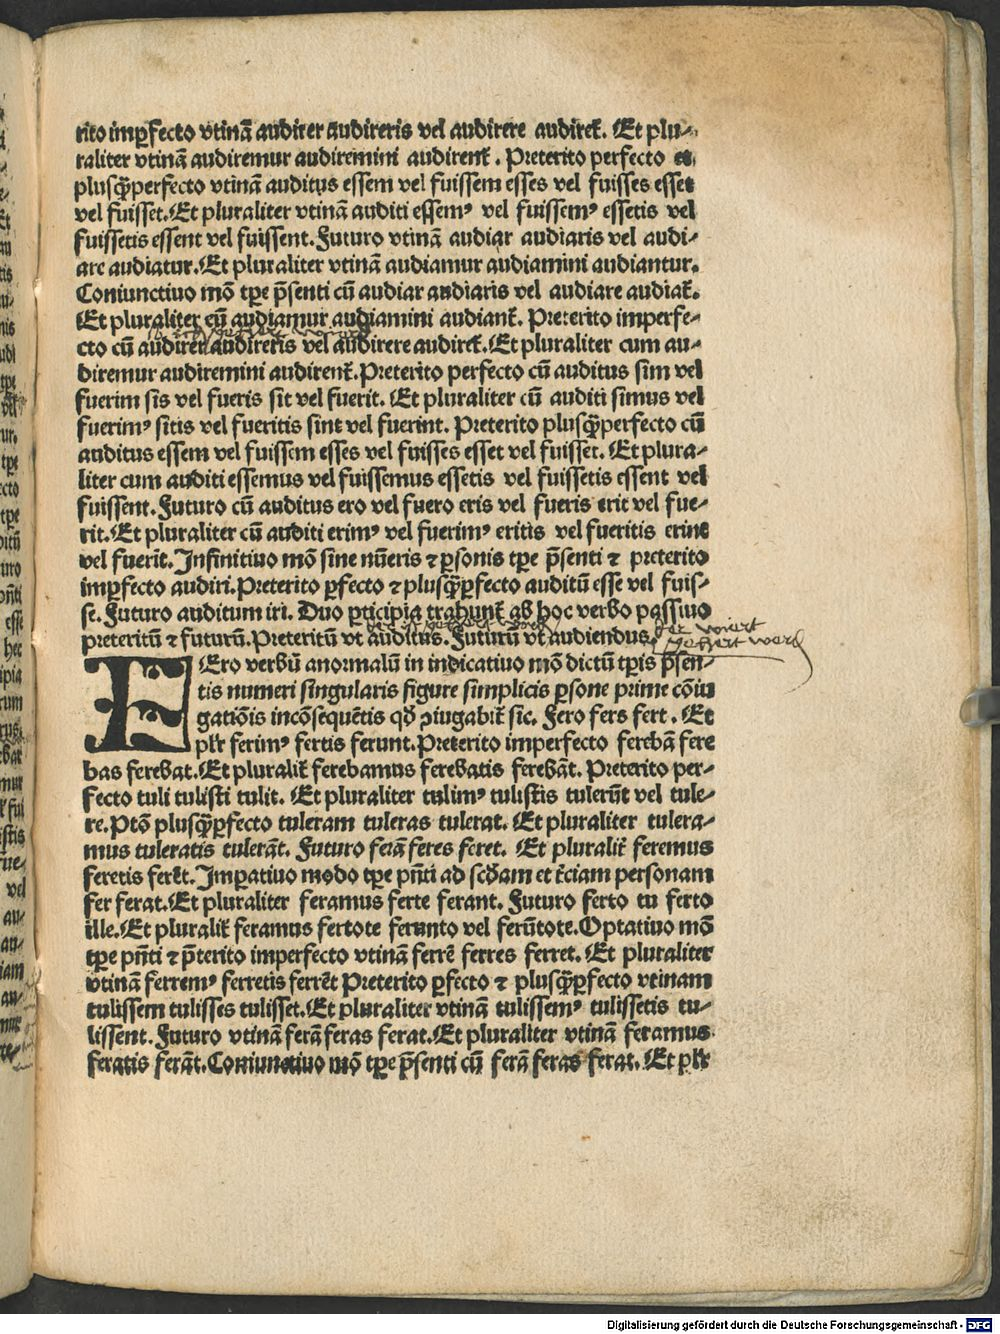 rito imꝑfecto vtinā audirer audireris vel audirere audireť. Et plu⸗
raliter vtinā audiremur audiremini audirenť. Preterito perfecto et
plusq̄ꝑperfecto vtinā auditus essem vel fuissem esses vel fuisses esset
vel fuisset. Et pluraliter vtinā auditi essemꝰ vel fuissemꝰ essetis vel
fuissetis essent vel fuissent. Futuro vtinā audiar audiaris vel audi⸗
are audiatur. Et pluraliter vtinā audiamur audiamini audiantur.
Coniunctiuo mō tꝑe p̄senti cū audiar audiaris vel audiare audiať.
Et pluraliter cū audiamur audiamini audianť. Preterito imperfe⸗
cto cū audirer audireris vel audirere audireť. Et pluraliter cum au⸗
diremur audiremini audirenť. Preterito perfecto cū auditus sim vel
fuerim sis vel fueris sit vel fuerit. Et pluraliter cū auditi simus vel
fuerimꝰ sitis vel fueritis sint vel fuerint. Preterito plusq̄ꝑfecto cū
auditus essem vel fuissem esses vel fuisses esset vel fuisset. Et plura⸗
liter cum auditi essemus vel fuissemus essetis vel fuissetis essent vel
fuissent. Futuro cū auditus ero vel fuero eris vel fueris erit vel fue⸗
rit. Et pluraliter cū auditi erimꝰ vel fuerimꝰ eritis vel fueritis erint
vel fuerīt. Infinitiuo mō sine nūeris ⁊ ꝑsonis tꝑe p̄senti ⁊ preterito
imꝑfecto audiri. Preterito ꝑfecto ⁊ plusq̄ꝑfecto auditū esse vel fuis⸗
se. Futuro auditum iri. Duo ꝑticipia trahunť ab hoc verbo passiuo
preteritū ⁊ futurū. Preteritū vt auditus. Futurū vt audiendus.
der wiert
gehert werd
FEro verbū anormalū in indicatiuo mō dictū tꝑis p̄sen⸗
tis numeri singularis figure simplicis ꝑsone prime cōiu
gatiōis incōsequētis qđ ꝯiugabiť sic. Fero fers fert. Et
plr ferimꝰ fertis ferunt. Preterito imperfecto ferebā fere
bas ferebat. Et pluraliť ferebamus ferebatis ferebāt. Preterito per⸗
fecto tuli tulisti tulit. Et pluraliter tulimꝰ tulistis tulerūt vel tule⸗
re. Ptō plusq̄ꝑfecto tuleram tuleras tulerat. Et pluraliter tulera⸗
mus tuleratis tulerāt. Futuro ferā feres feret. Et pluraliť feremus
feretis ferēt. Imꝑatiuo modo tꝑe pn̄ti ad scđam et ťciam personam
fer ferat. Et pluraliter feramus ferte ferant. Futuro ferto tu ferto
ille. Et pluraliť feramus fertote ferunto vel ferūtote. Optatiuo mō
tꝑe pn̄ti ⁊ p̄terito imperfecto vtinā ferrē ferres ferret. Et pluraliter
vtinā ferremꝰ ferretis ferrēt Preterito ꝑfecto ⁊ plusq̄ꝑfecto vtinam
tulissem tulisses tulisset. Et pluraliter vtinā tulissemꝰ tulissetis tu⸗
lissent. Futuro vtinā ferā feras ferat. Et pluraliter vtinā feramus
feratis ferāt. Coniunctiuo mō tꝑe p̄senti cū ferā feras ferat. Et plr
Digitalisierung gefördert durch die Deutsche Forschungsgemeinschaft - DFG